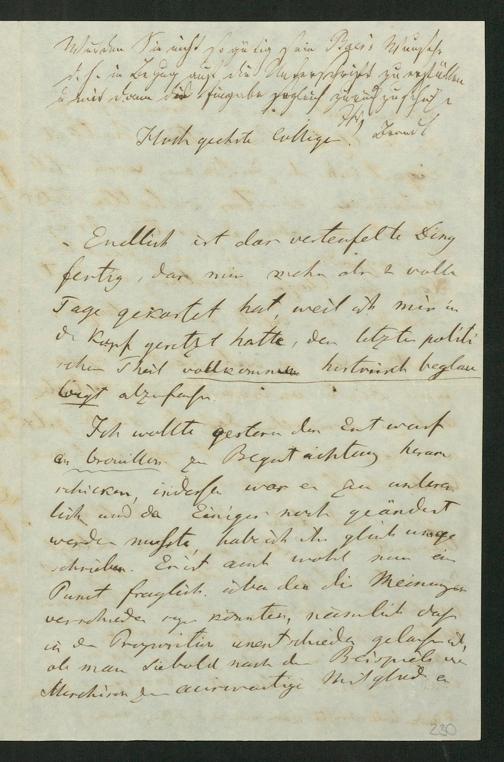 Würden Sie nicht so gütig sein Beer's Wunsche
d. h. in Bezug auf die Unterschrift zu erfüllen
u mir dann die Eingabe zugleich zurückzuschi
Hoch geehrter College.
Endlich ist das verteufelte Ding
fertig, das mir mehr als 2 volle
Tage gekostet hat, weil ich mir in
de Kopf gesetzt hatte, den letzten politi
schen Theil vollkommen historisch beglau
bigt abzufassen.
Ich wollte gestern den Entwurf
en brouillon zur Begutachtung herum
schicken, indessen war er zu unleser
lich und da Einiges noch geändert
werden musste habe ich ihn gleich umge
schrieben. Es ist auch wohl nur ein
Punct fraglich über den die Meinungen
verschieden seyn könnten, nämlich dass
in der Proposition unentschieden gelassen ist,
ob man Siebold nach dem Beispiele von
Murchison zum auswärtigen Mitglied er
230